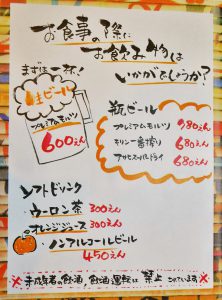 お食事の際に
お飲み物は
いかがでしょうか?
まずは一杯!
生ビール
プレミアムモルツ
600えん
瓶ビール
プレミアムモルツ 980えん
キリン一番搾り 680えん
アサヒスーパードライ 680えん
ソフトドリンク
ウーロン茶 300えん
オレンジジュース 300えん
ノンアルコールビール
450えん
※未成年者の飲酒、飲酒運転は禁止されています※